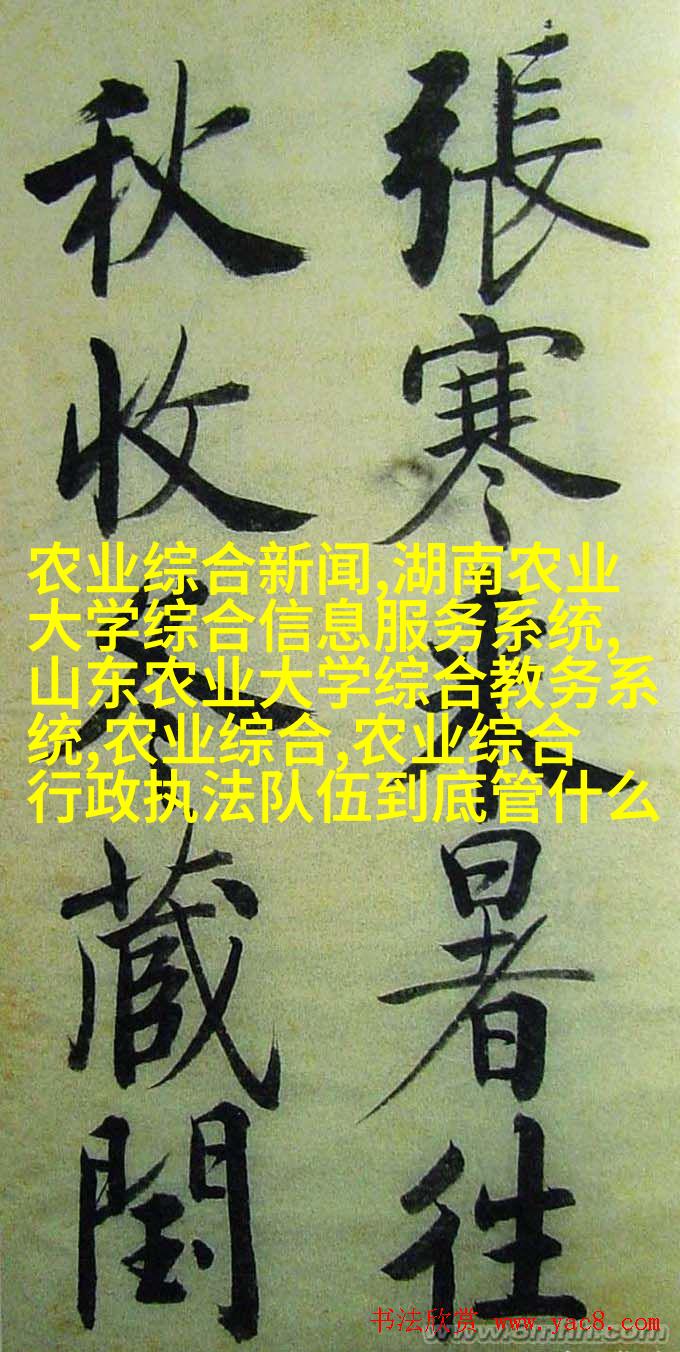 張寒來暑往
秋收冬藏閏
农业综合新闻,湖南农业
大学综合信息服务系统,
山东农业大学综合教务系
统,农业综合,农业综合
行政执法队伍到底管什么
书法欣赏 www.yac8.com